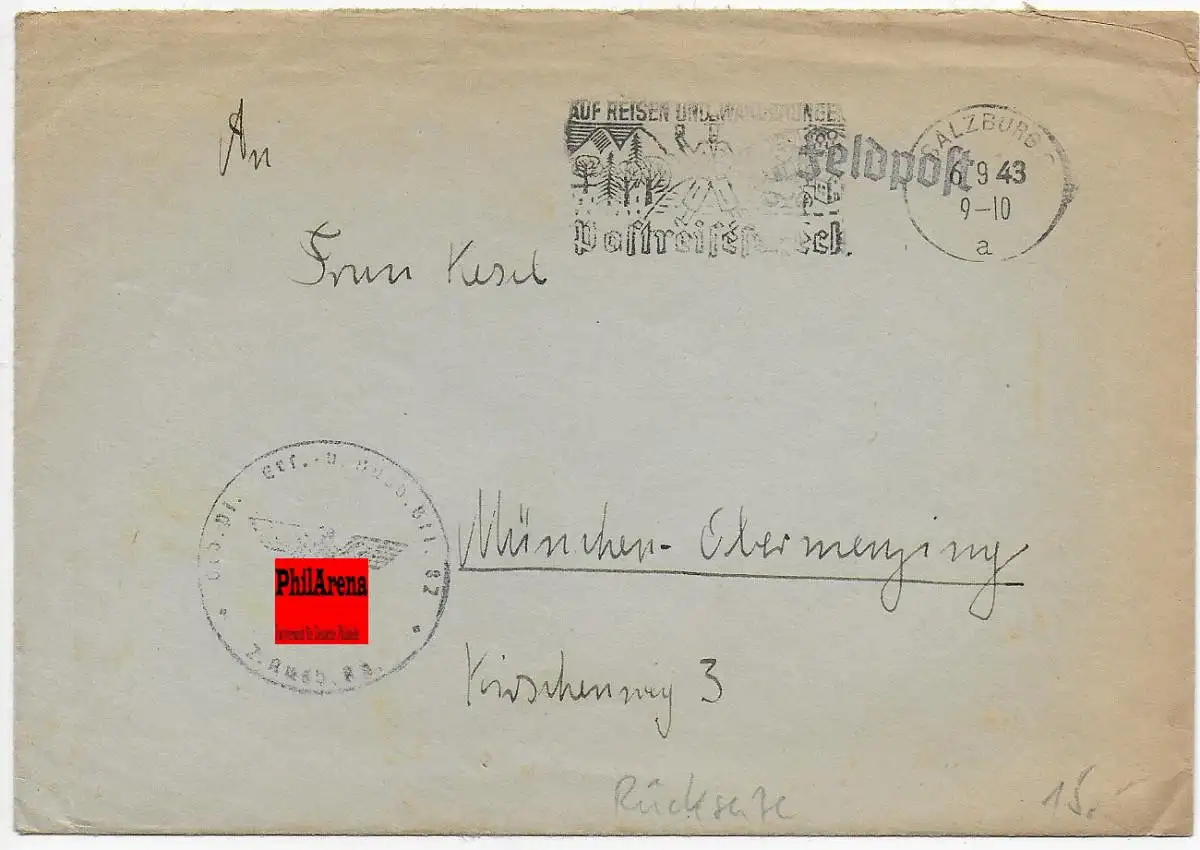 An
AUF REISEN UND WANDERUNGEN
Postreisescheck.
Feldpost
SALZBURG
6 9 43
9-10
a
Frau Kesel
Geb. Pi. Ers.- u. Ausb. Btl. 82
2. Ausb. Kp.
PhilArena
München-Obermenzing
Kirschenweg 3
Rückseite
15.-